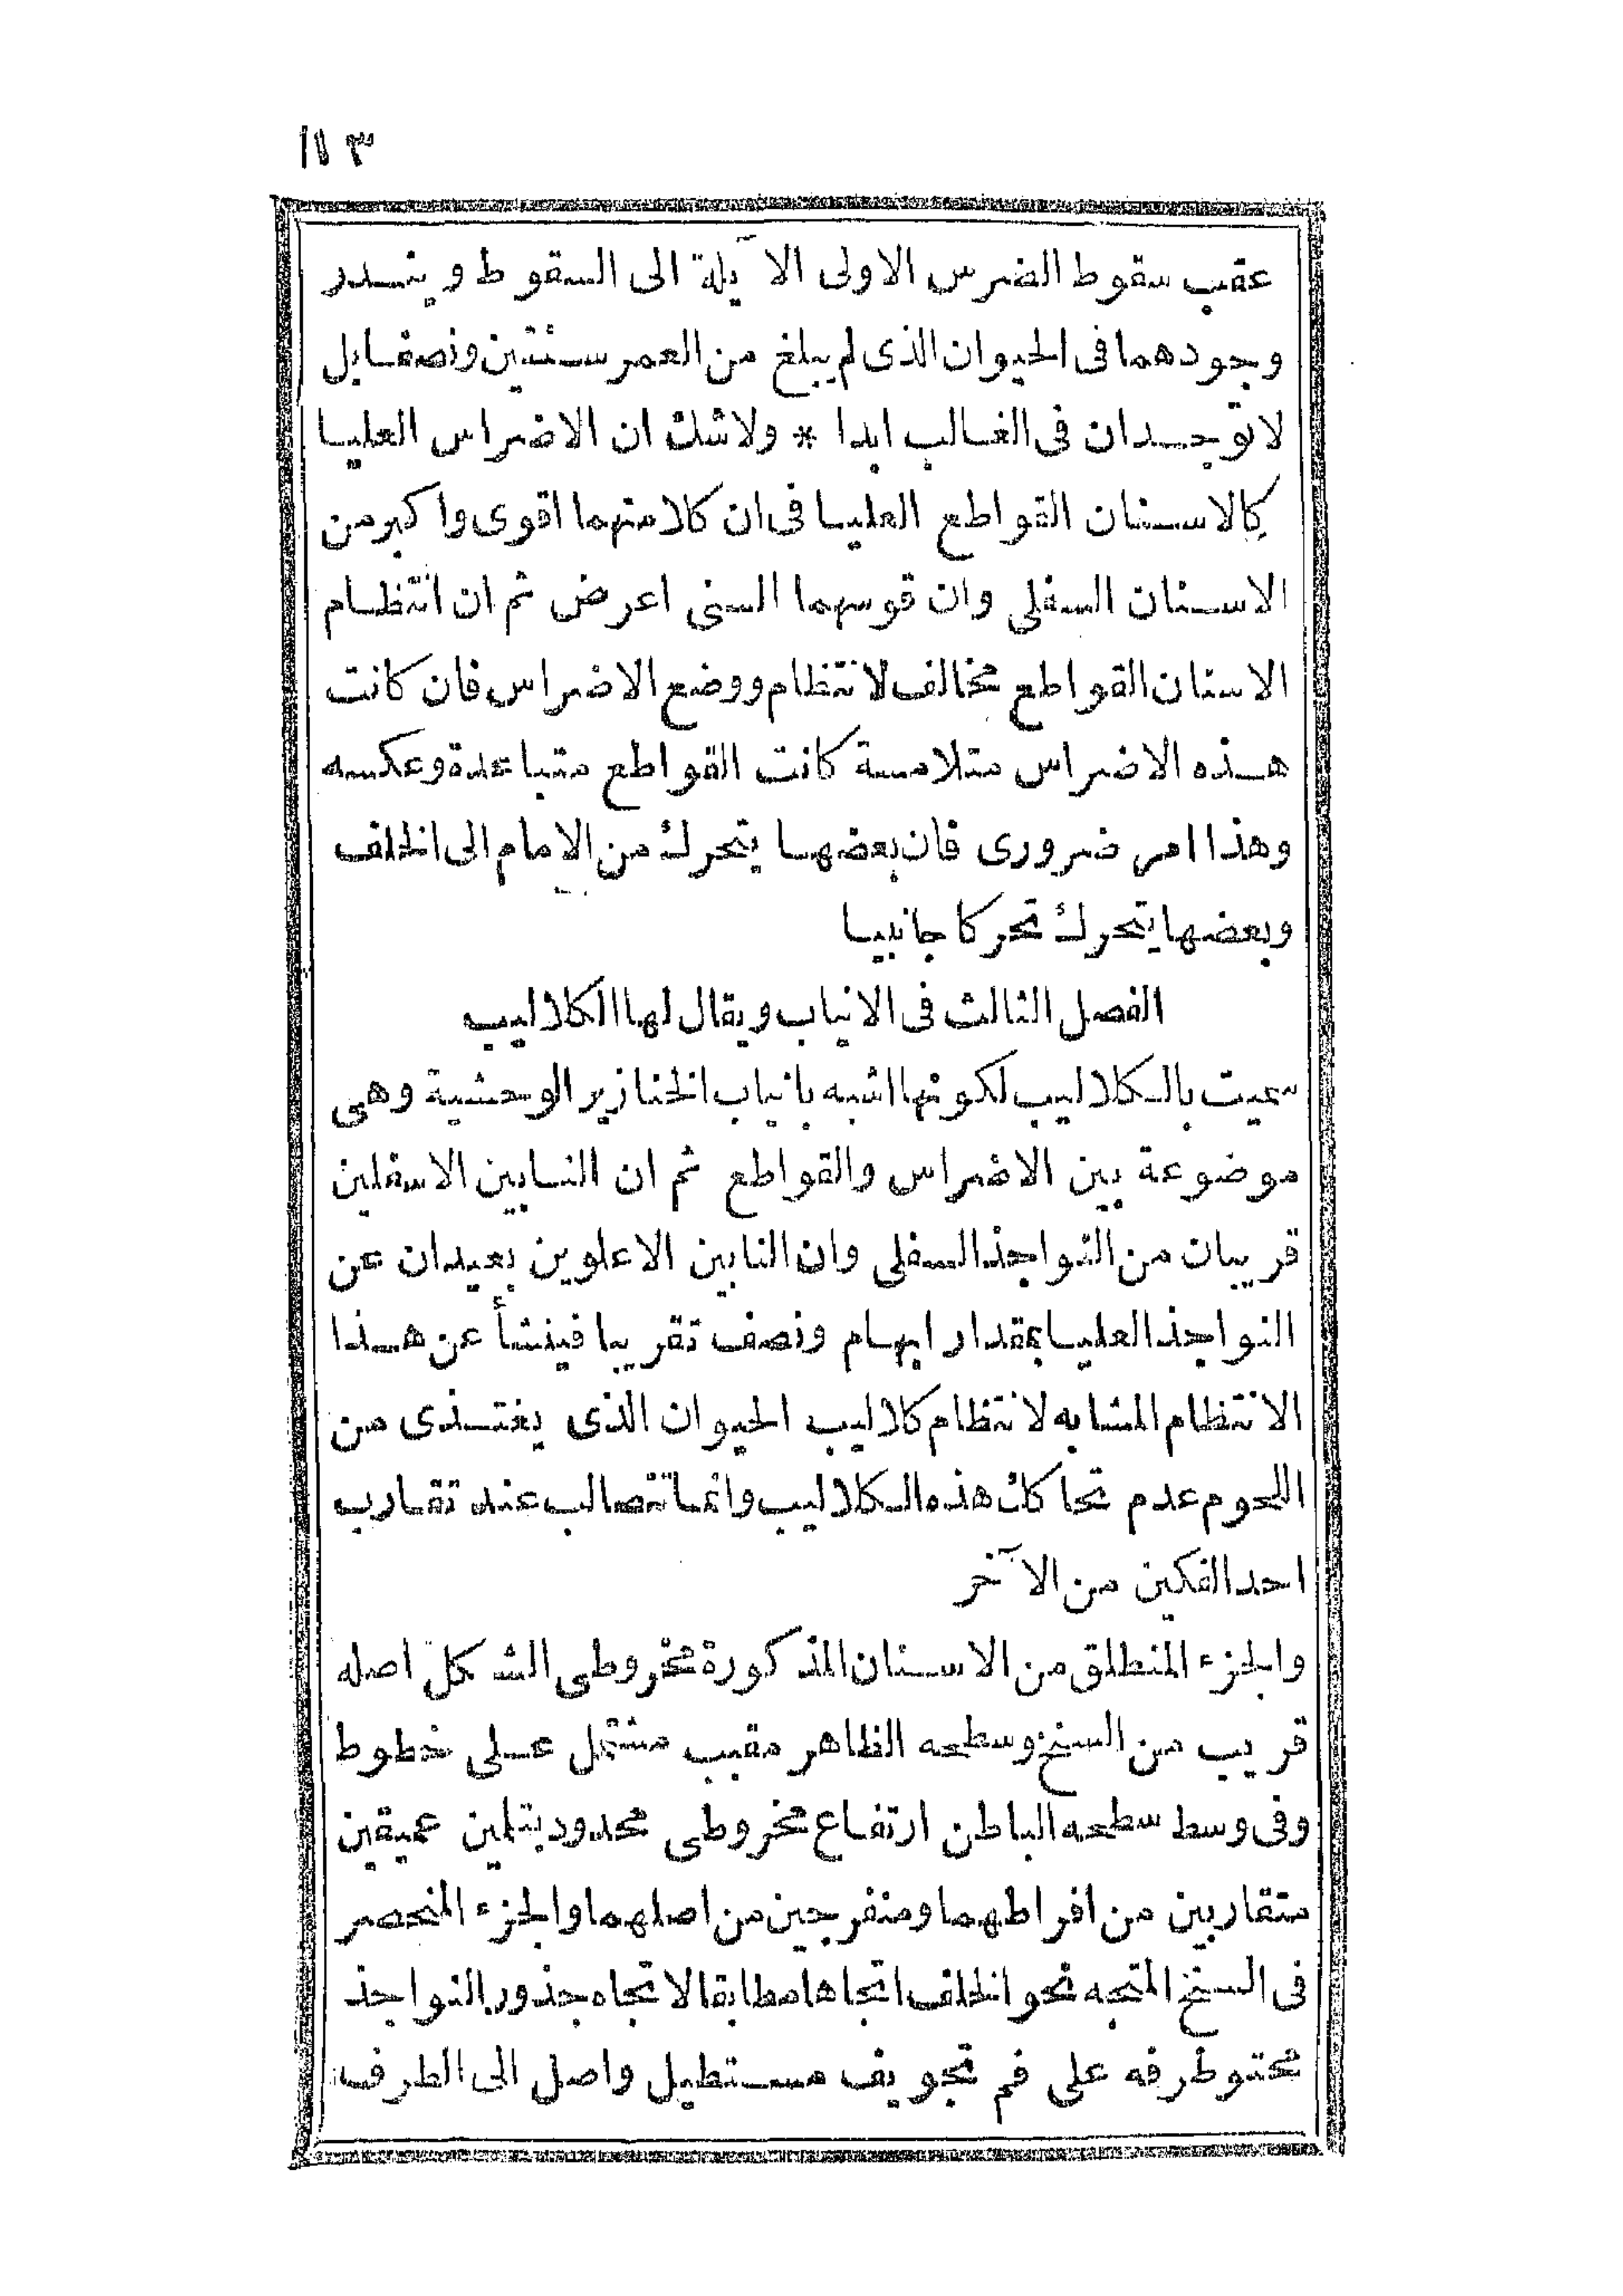 ١١٣
عقب سقوط الضرس الاولى الآيلة الى السقوط ويندر
وجودهما فى الحيوان الذى لم يبلغ من العمر سنتين ونصفا بل
لاتوجدان فى الغالب ابدا * ولاشك ان الاضراس العليا
كالاسنان القواطع العليا فى ان كلا منهما اقوى واكبر من
الاسنان السفلى وان قوسهما السنى اعرض ثم ان انتظام
الاسنان القواطع مخالف لانتظام ووضع الاضراس فان كانت
هذه الاضراس متلامسة كانت القواطع متباعدة وعكسه
وهذا امر ضرورى فان بعضها يتحرك من الامام الى الخلف
وبعضها يتحرك تحركا جانبيا
الفصل الثالث فى الانياب ويقال لها الكلاليب
سميت بالكلاليب لكونها اشبه بانياب الخنازير الوحشية وهى
موضوعة بين الاضراس والقواطع ثم ان النابين الاسفلين
قريبان من النواجذ السفلى وان النابين الاعلوين بعيدان عن
النواجذ العليا بمقدار ابهام ونصف تقريبا فينشأ عن هذا
الانتظام المشابه لانتظام كلاليب الحيوان الذى يغتذى من
اللحوم عدم تحاكك هذه الكلاليب وانما تتصالب عند تقارب
احد الفكين من الآخر
والجزء المنطلق من الاسنان المذكورة مخروطى الشكل اصله
قريب من السنخ وسطحه الظاهر مقبب مشتمل على خطوط
وفى وسط سطحه الباطن ارتفاع مخروطى محدود بتلمين عميقين
متقاربين من افراطهما ومنفرجين من اصلهما والجزء المنحصر
فى السنخ المتجه نحو الخلف اتجاها مطابقا لاتجاه جذور النواجذ
محتو طرفه على فم تجويف مستطيل واصل الى الطرف